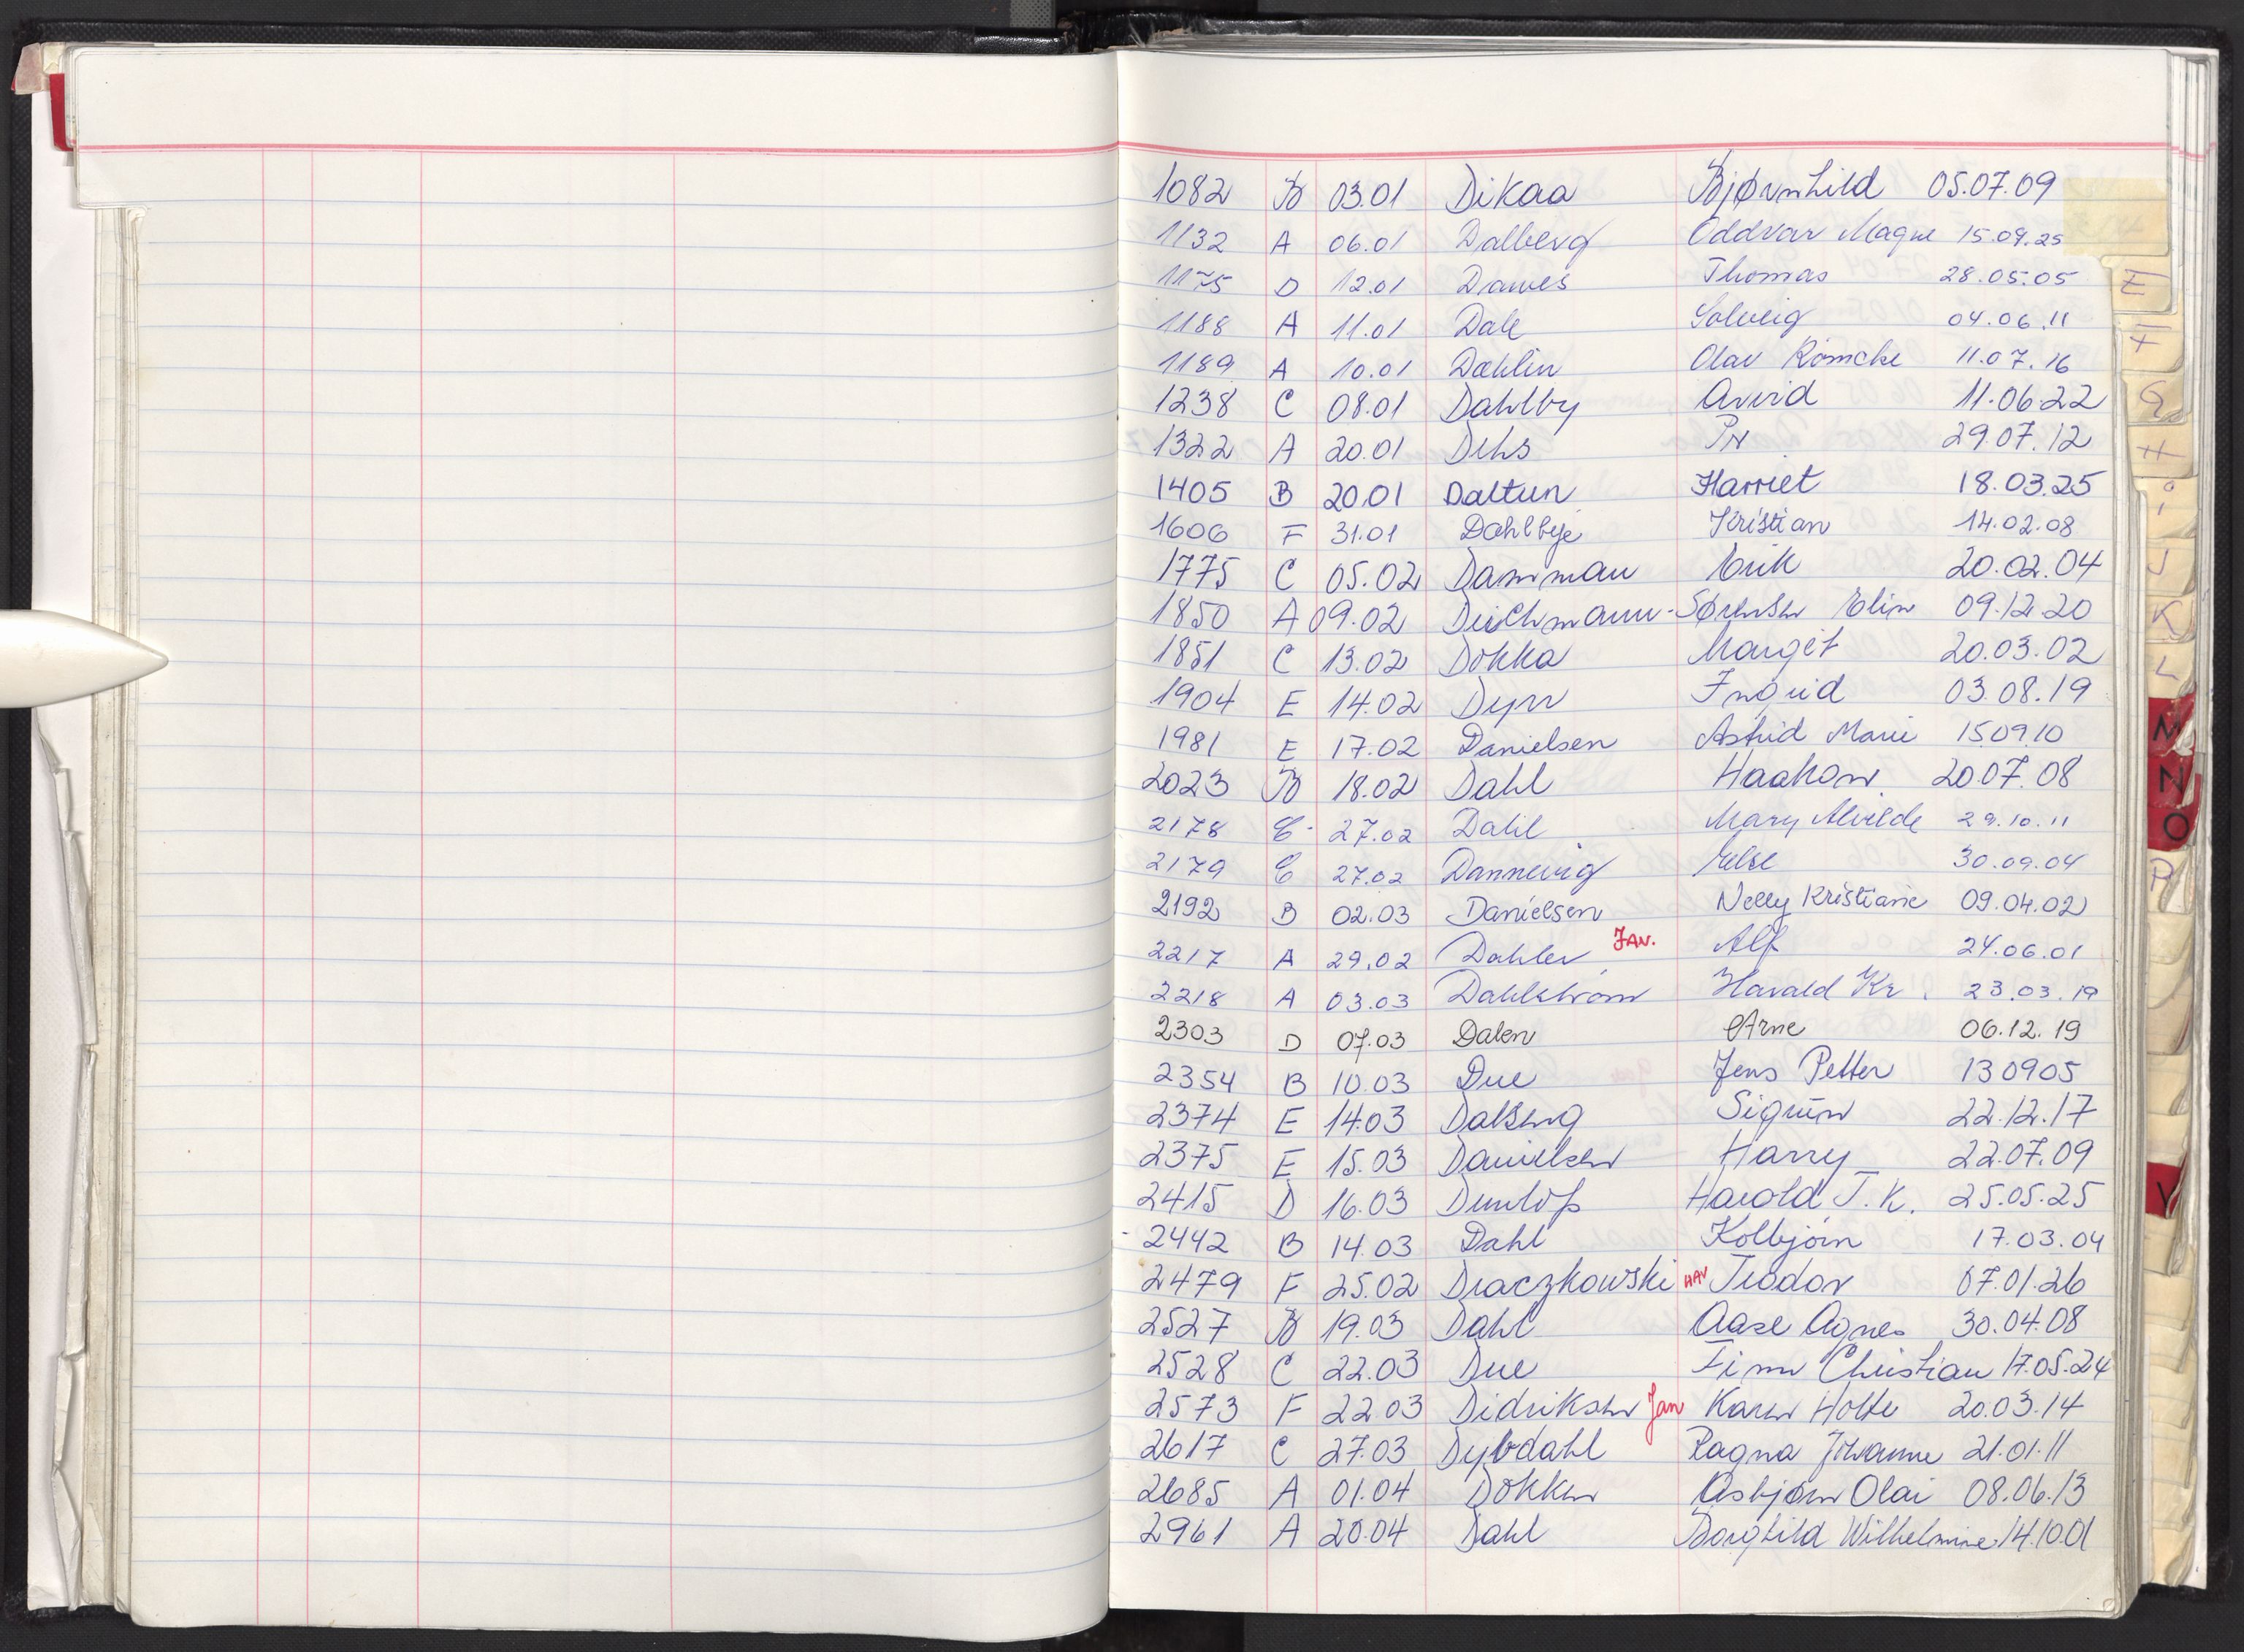 1082 B 03.01 Dikaa Bjørnhild 05.07.09
1132 A 06.01 Dalberg Oddvar Magne 15.09.25
1175 D 12.01 Dawes Thomas 28.05.05
1188 A 11.01 Dale Solveig 04.06.11
1189 A 10.01 Dahlin Olav Römcke 11.07.16
1238 C 08.01 Dahlby Arvid 11.06.22
1322 A 20.01 Dehs 29.07.12
1405 B 20.01 Daltun Harriet 18.03.25
1606 F 31.01 Dahlbye Kristian 14.02.08
1775 C 05.02 Damman Erik 20.02.04
1850 A 09.02 Deichmann-Sørensen Elin 09.12.20
1851 C 13.02 Dokka Margit 20.03.02
1904 E 14.02 Ingrid 03.08.19
1981 E 17.02 Danielsen Astrid Marie 15.09.10
2023 B 18.02 Dahl Haakon 20.07.08
2178 E- 27.02 Dahl Mary Alvilde 29.10.11
2179 E 27.02 Dannevig Else 30.09.04
2192 B 02.03 Danielsen Nelly Kristiane 09.04.02
2217 A 29.02 Dahler JAN. Alf 24.06.01
2218 A 03.03 Dahlstrøm Harald Kr. 23.03.19
2303 D 07.03 Dalen Arne 06.12.19
2354 B 10.03 Due Jens Petter 130905
2374 E 14.03 Dalseng Sigrun 22.12.17
2375 E 15.03 Danielsen Harry 22.07.09
2415 D 16.03 Dunlop Harold J. K. 25.05.25
- 2442 B 14.03 Dahl Kolbjørn 17.03.04
2479 F 25.02 Draczkowski HAV Teodor 07.01.26
2527 B 19.03 Dahl Aase Agnes 30.04.08
2528 C 22.03 Due Finn Christian 17.05.24
2573 F 22.03 Didriksen Jan Karen Holte 20.03.14
2617 C 27.03 Dybdahl Ragna Johanne 21.01.11
2685 A 01.04 Dokken Asbjørn Olai 08.06.13
2961 A 20.04 Dahl Borghild Wilhelmine 14.10.01
E
F
G
H
i
J
K
L
M
N
O
P
V